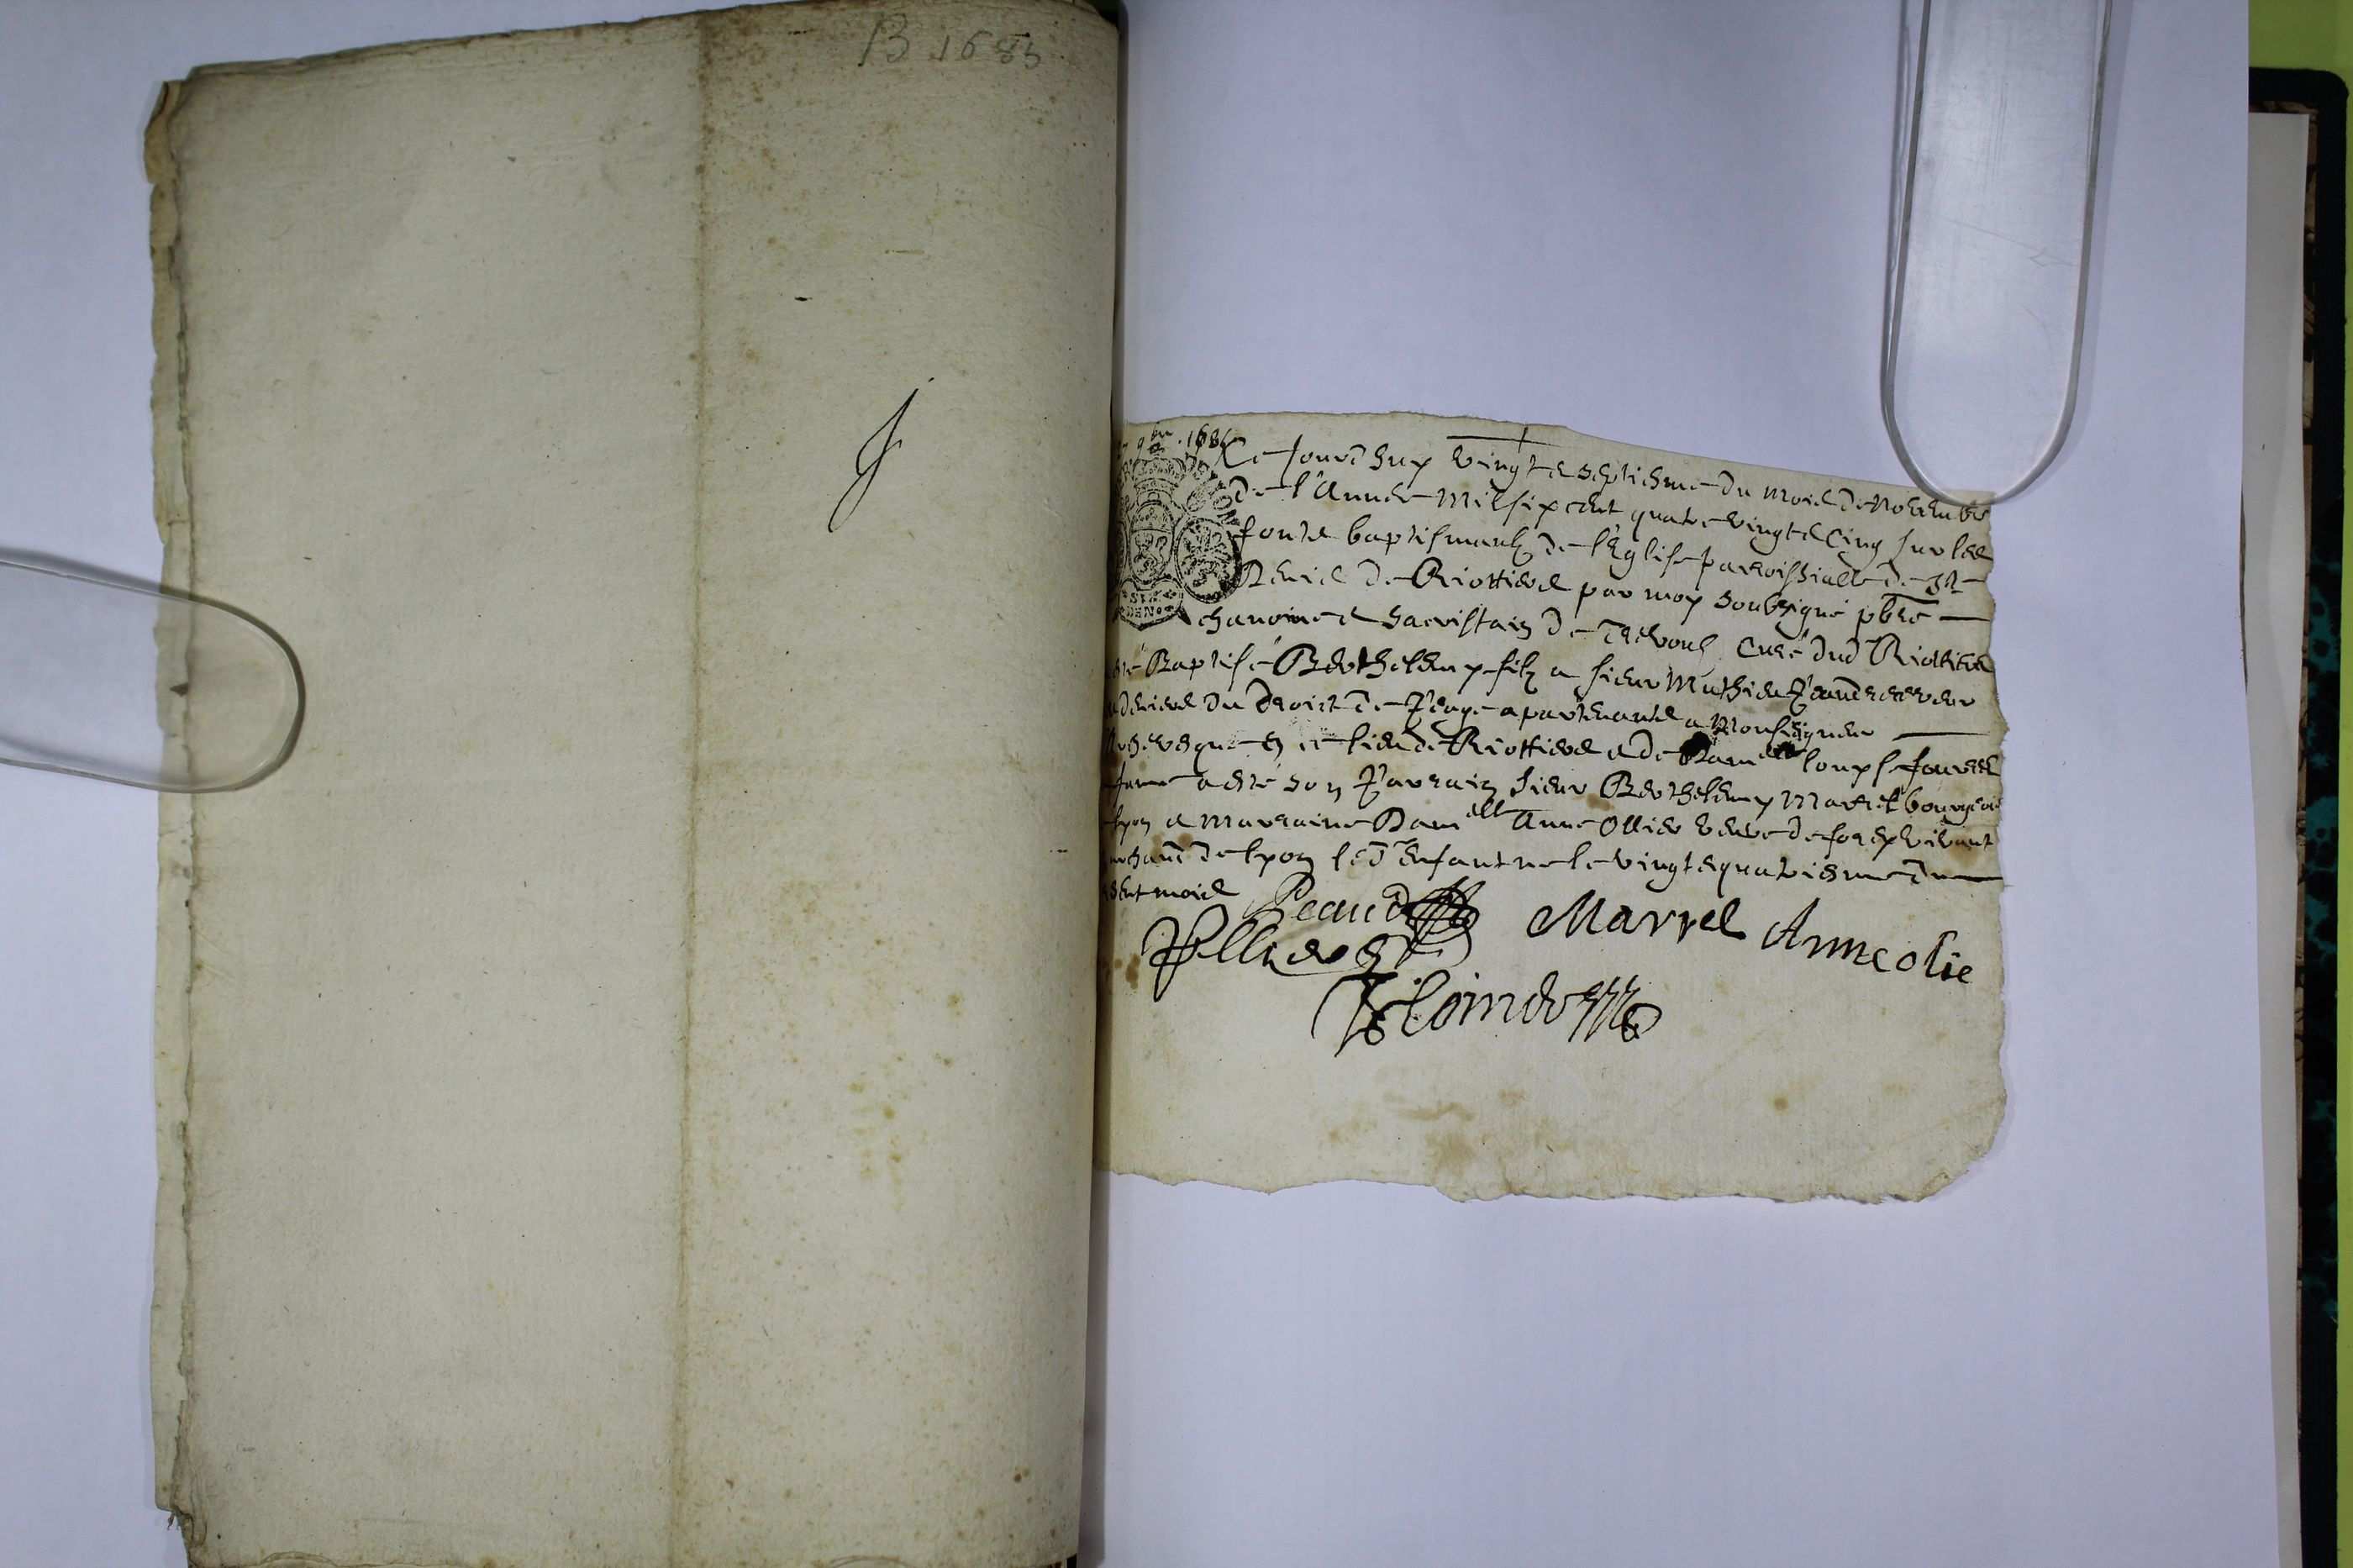 B 1685
9bre 1685
Ce jourdhuy vingt et septiesme du mois de Novembre
de l'Année mil six cent quatre vingt et cinq sur les
fonts baptismaux de l'Eglise parroissialle de St
Denis de Riottiers par moy soubsigné pbre
chanoine et sacristain de Trevoux curé dud Riottiers
esté Baptisé Berthelemy filz a sieur Mathieu
du droict de Peage apartenants a Monseigneur
en ce lieu de Riottiers et de Dam elle
a esté son Parrain sieur Berthelemy Marrel bourgeois
lyon et Marraine Dam elle Anne Ollier veuve de vivant
de lyon led Enfant ne le vingt et quatriesme du
mois
Marrel Anne olie